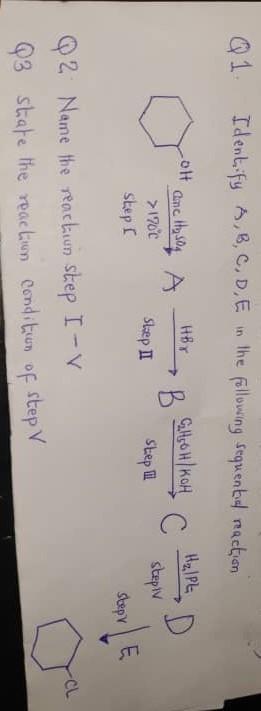 Q1. Identify A, B, C, D, E in the following sequential reaction
OH
Conc H₂SO₄
>170°C
Step I
A
HBr
Step II
B
C₂H₅OH/KOH
Step III
C
H₂/Pt
Step IV
D
Step V
E
CL
Q2. Name the reaction step I - V
Q3 State the reaction condition of step V